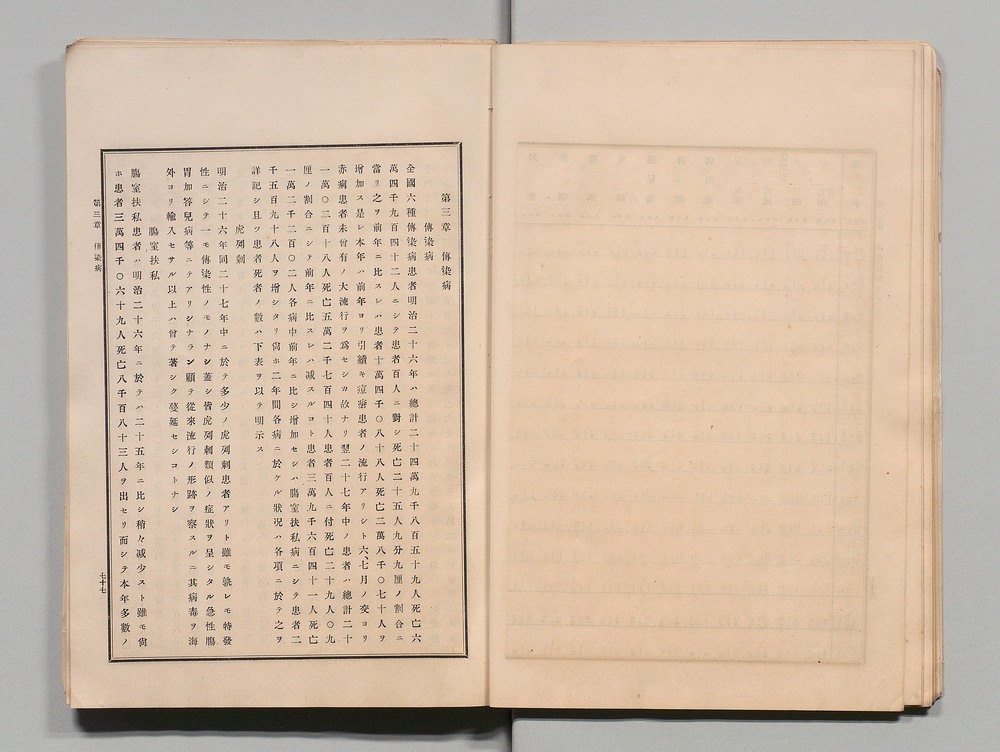 第三章 傳染病
傳染病
全國六種傳染病患者明治二十六年ハ總計二十四萬九千八百五十九人死亡六
萬四千九百四十二人ニシテ患者百人ニ對シ死亡二十五人九分九厘ノ割合ニ
當リ之ヲ前年ニ比スレハ患者十萬四千〇八十八人死亡二萬八千〇七十人ヲ
增加ス是レ本年ハ前年ヨリ引續キ痘瘡患者ノ流行アリシト六、七月ノ交ヨリ
赤痢患者未曾有ノ大流行ヲ爲セシカ故ナリ翌二十七年中ノ患者ハ總計二十
一萬〇二百十八人死亡五萬二千七百四十人患者百人ニ付死亡二十九人〇九
厘ノ割合ニシテ前年ニ比スレハ減スルコト患者三萬九千六百四十一人死亡
一萬二千二百〇二人各病中前年ニ比シ增加セシハ膓窒扶私病ニシテ患者二
千五百九十八人ヲ增シタリ尙ホ二年間各病ニ於ケル狀況ハ各項ニ於テ之ヲ
詳記シ且ツ患者死者ノ數ハ下表ヲ以テ明示ス
虎列剌
明治二十六年同二十七年中ニ於テ多少ノ虎列剌患者アリト雖モ孰レモ特發
性ニシテ一モ傳染性ノモノナシ蓋シ皆虎列剌類似ノ症狀ヲ呈シタル急性膓
胃加答兒病等ニテアリシナラン顧テ從來流行ノ形跡ヲ察スルニ其病毒ヲ海
外ヨリ輸入セサル以上ハ曾テ著シク蔓延セシコトナシ
膓窒扶私
膓窒扶私患者ハ明治二十六年ニ於テハ二十五年ニ比シ稍々減少スト雖モ尙
ホ患者三萬四千〇六十九人死亡八千百八十三人ヲ出セリ而シテ本年多數ノ
第三章 傳染病
七十七